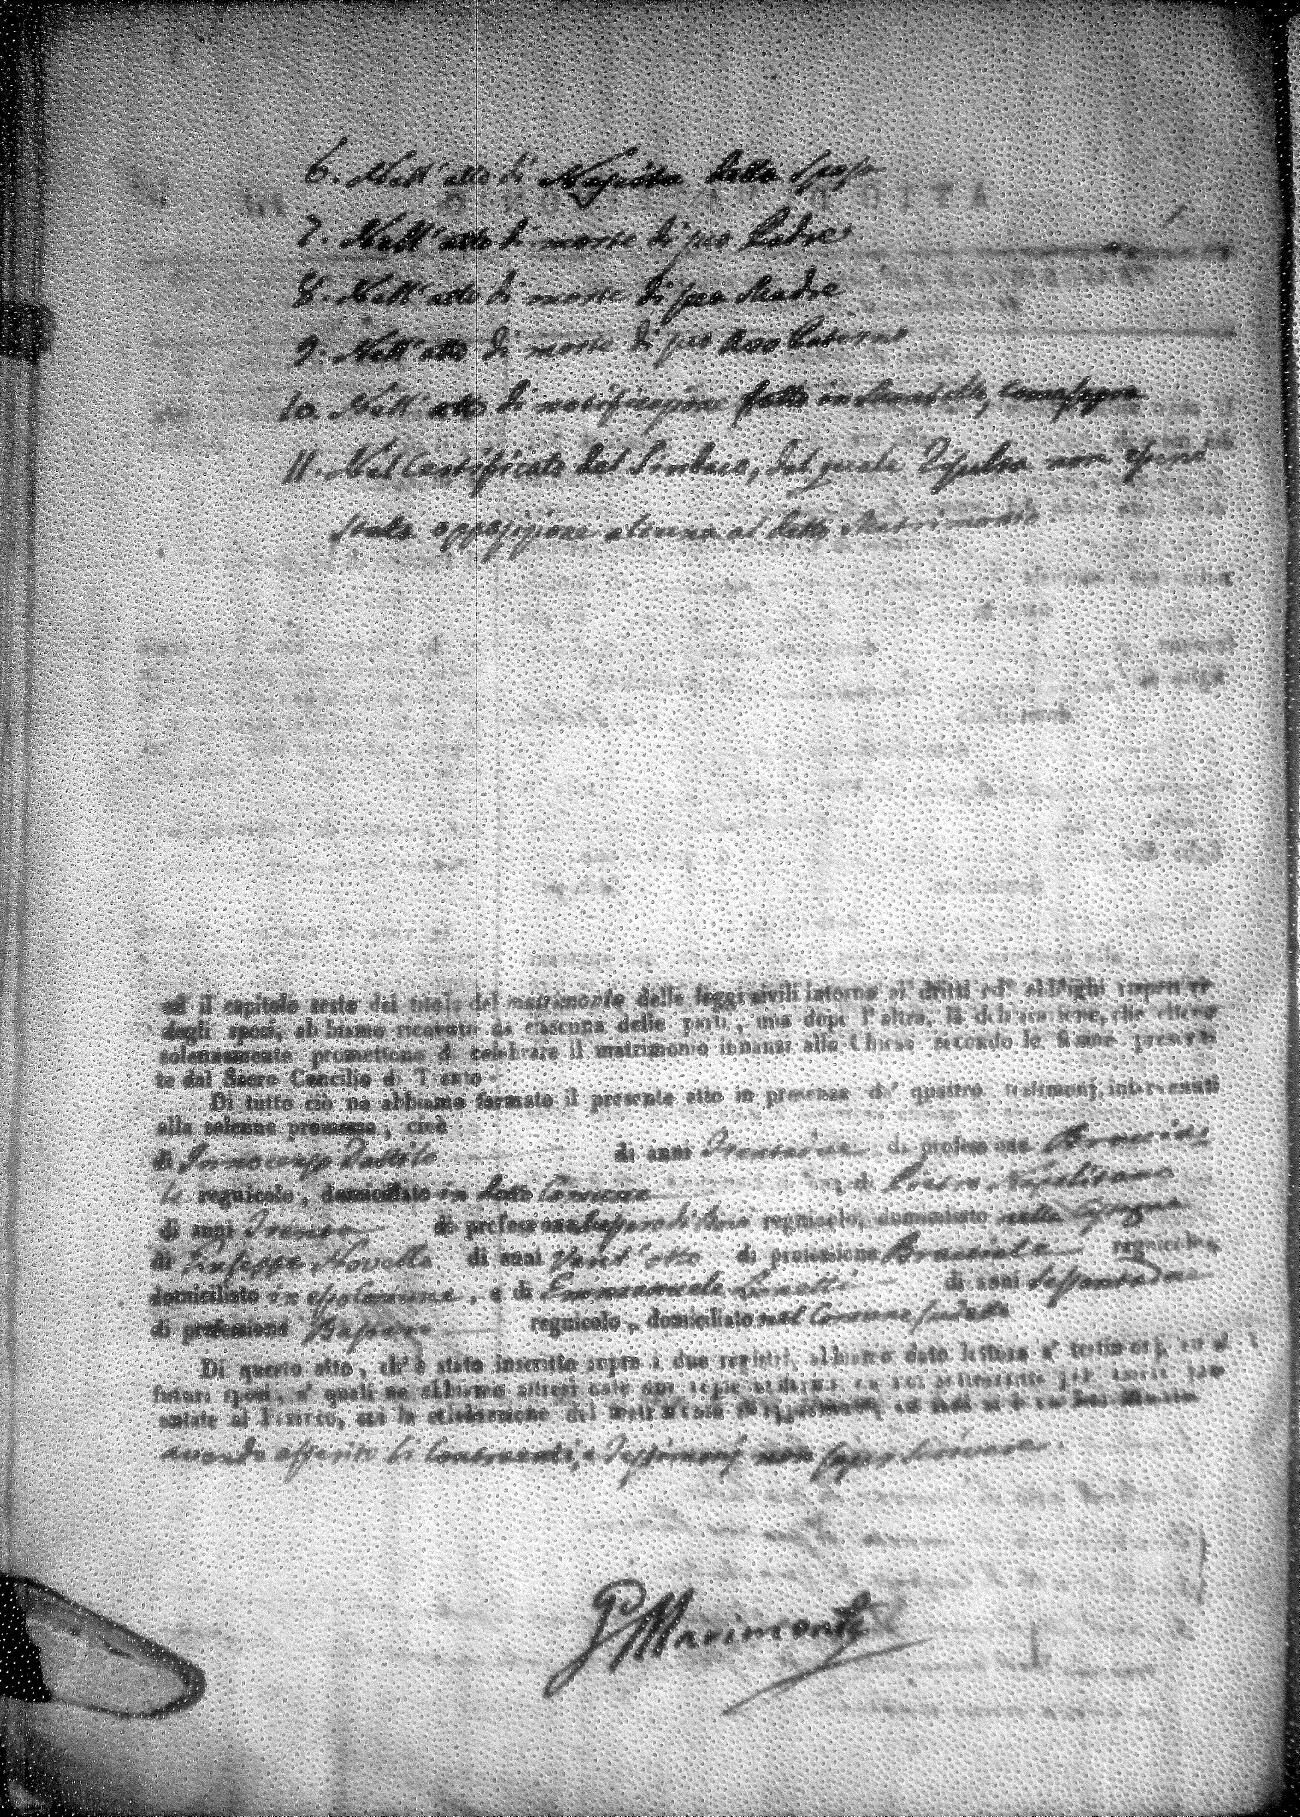 6. Nell'atto di Nascita della Sposa
7. Nell'atto di morte di suo Padre
8. Nell'atto di morte di sua Madre
9. Nell'atto di morte di suo Avo Paterno
10. Nell'atto di notificazione fatto in come sopra
11. Nel Certificato del Sindaco, dal quale risulta non esservi
stata opposizione alcuna al detto Matrimonio
ed il capitolo sesto del titolo del matrimonio delle leggi civili intorno ai dritti ed obblighi rispettivi
degli sposi, abbiamo ricevuto da ciascuna delle parti, una dopo l'altra, la dichiarazione, che elleno
solennemente promettono di celebrare il matrimonio innanzi alla Chiesa secondo le forme prescrit-
te dal Sacro Concilio di Trento
Di tutto ciò ne abbiamo formato il presente atto in presenza de' quattro testimonj intervenuti
alla solenne promessa, cioè
di Innocenzo Dattilo di anni di professione Braccia
le regnicolo, domiciliato in detto Comune di Pietro Napolitano
di anni Trenta di professione regnicolo, domiciliato
di Giuseppe Novello di anni Vent'otto di professione Bracciale regnicolo,
domiciliato in esso Comune, e di Emmanuele di anni Sessantadue
di professione regnicolo, domiciliato nel Comune sudetto
Di questo atto, ch'è stato inscritto sopra i due registri, abbiamo dato lettura a' testimonj, ed a'
futuri sposi, a' quali ne abbiamo altresì date due copie uniformi da noi sottoscritte per essere pre-
sentate al Parroco, cui la celebrazione del matrimonio si appartiene, ed indi si è da Noi firmato
avendo asserito li Contraenti, e Testimonj non saper scrivere.
Marimonti